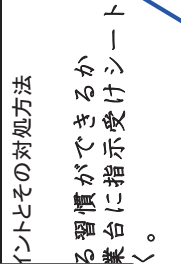 イントとその対処方法
る習慣ができるか
業台に指示受けシート
く。